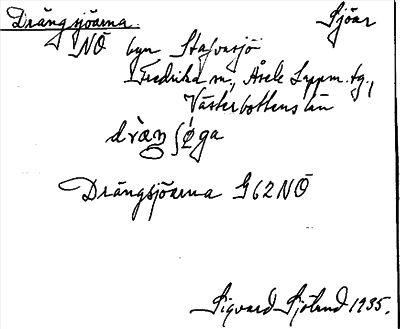 Drängsjöarna. Sjöar
NÖ byn Stafvarsjö
Fredrika sn., Åsele Lappm. tg.,
Västerbottens län
Drängsjöarna G62NÖ
Sigvard Sjölund 1935.